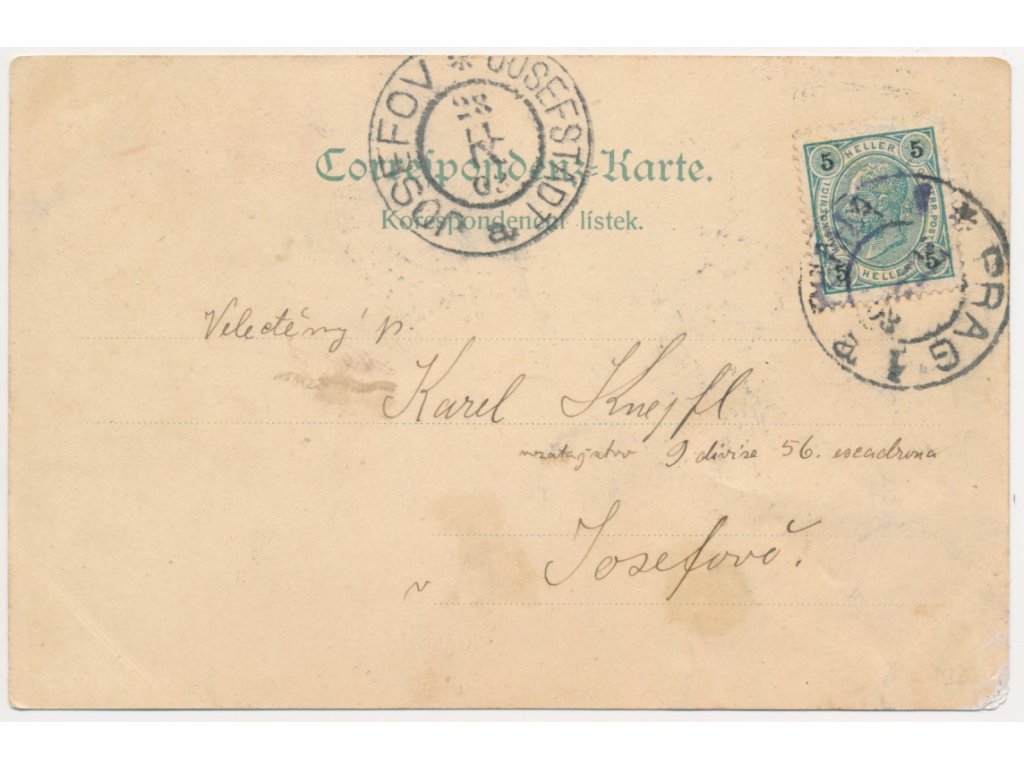 JOSEFOV * JOSEFSTADT a
Correspondenz-Karte.
Korespondenční lístek.
5 HELLER 5
5 HELLER 5
PRAG 1 a
03
Velectěný p.
Karel Knejfl
vozatajstvo 9 divise 56. escadrona
v Josefově.